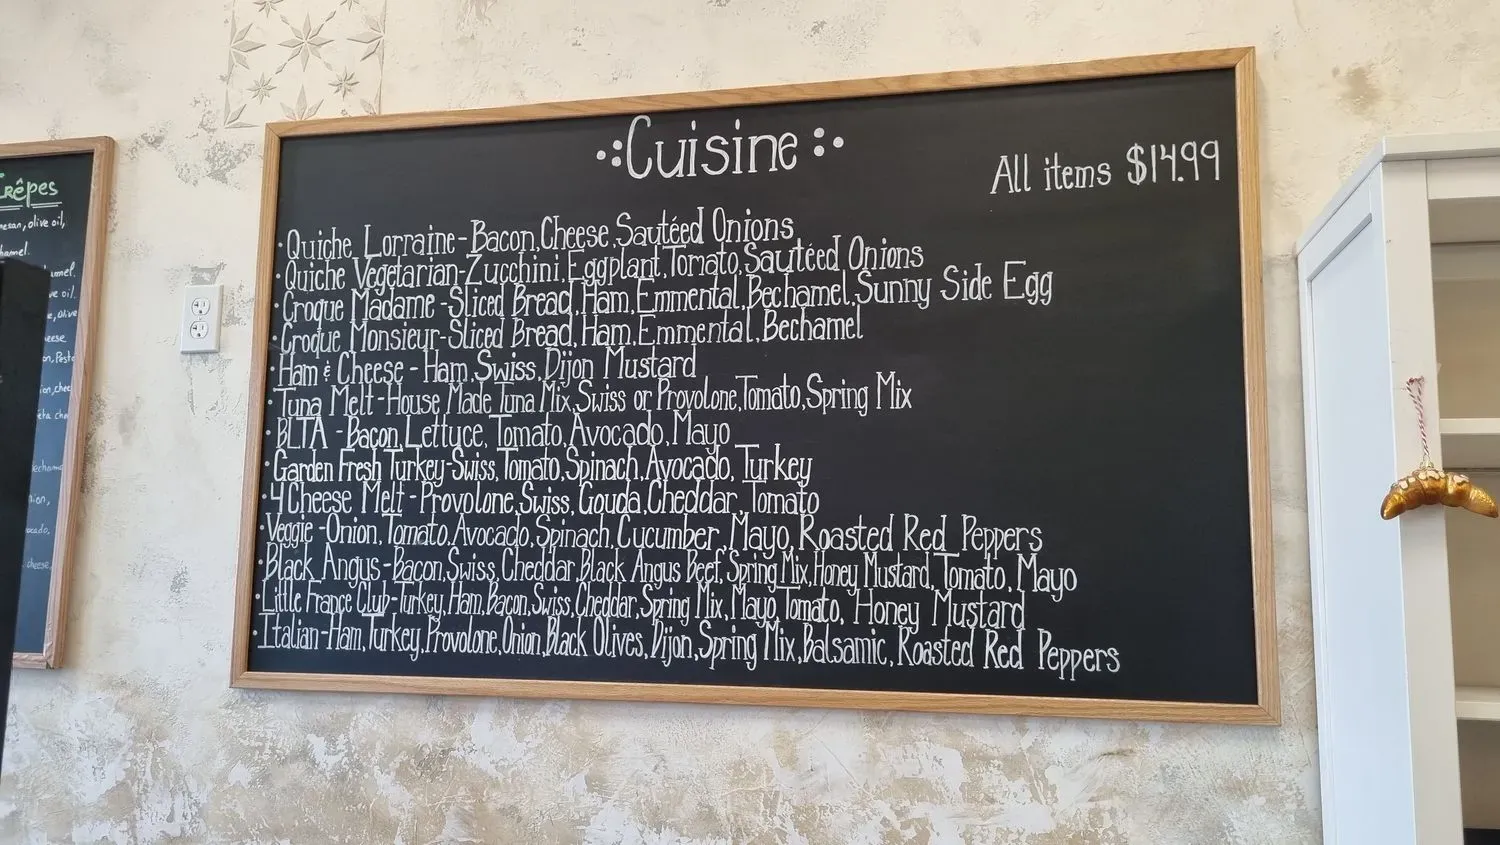 Crêpes
mesan, olive oil,
hamel.
hamel.
ve oil.
e, Olive
heese
on, Pesto
ion, chee
feta che
bechame
nion,
ocado,
cheese,
Cuisine
All items $14.99
·Quiche Lorraine-Bacon,Cheese,Sautéed Onions
·Quiche Vegetarian-Zucchini,Eggplant,Tomato,Sautéed Onions
·Croque Madame-Sliced Bread,Ham,Emmental,Bechamel,Sunny Side Egg
·Croque Monsieur-Sliced Bread,Ham,Emmental,Bechamel
·Ham & Cheese - Ham,Swiss,Dijon Mustard
·Tuna Melt-House Made Tuna Mix,Swiss or Provolone,Tomato,Spring Mix
·BLTA -Bacon,Lettuce,Tomato,Avocado,Mayo
·Garden Fresh Turkey-Swiss,Tomato,Spinach,Avocado, Turkey
·4 Cheese Melt-Provolone,Swiss,Gouda,Cheddar,Tomato
·Veggie-Onion,Tomato,Avocado,Spinach,Cucumber,Mayo,Roasted Red Peppers
·Black Angus-Bacon,Swiss,Cheddar,Black Angus Beef,Spring Mix,Honey Mustard,Tomato,Mayo
·Little France Club-Turkey,Ham,Bacon,Swiss,Cheddar,Spring Mix,Mayo,Tomato, Honey Mustard
·Italian-Ham,Turkey,Provolone,Onion,Black Olives,Dijon,Spring Mix,Balsamic,Roasted Red Peppers